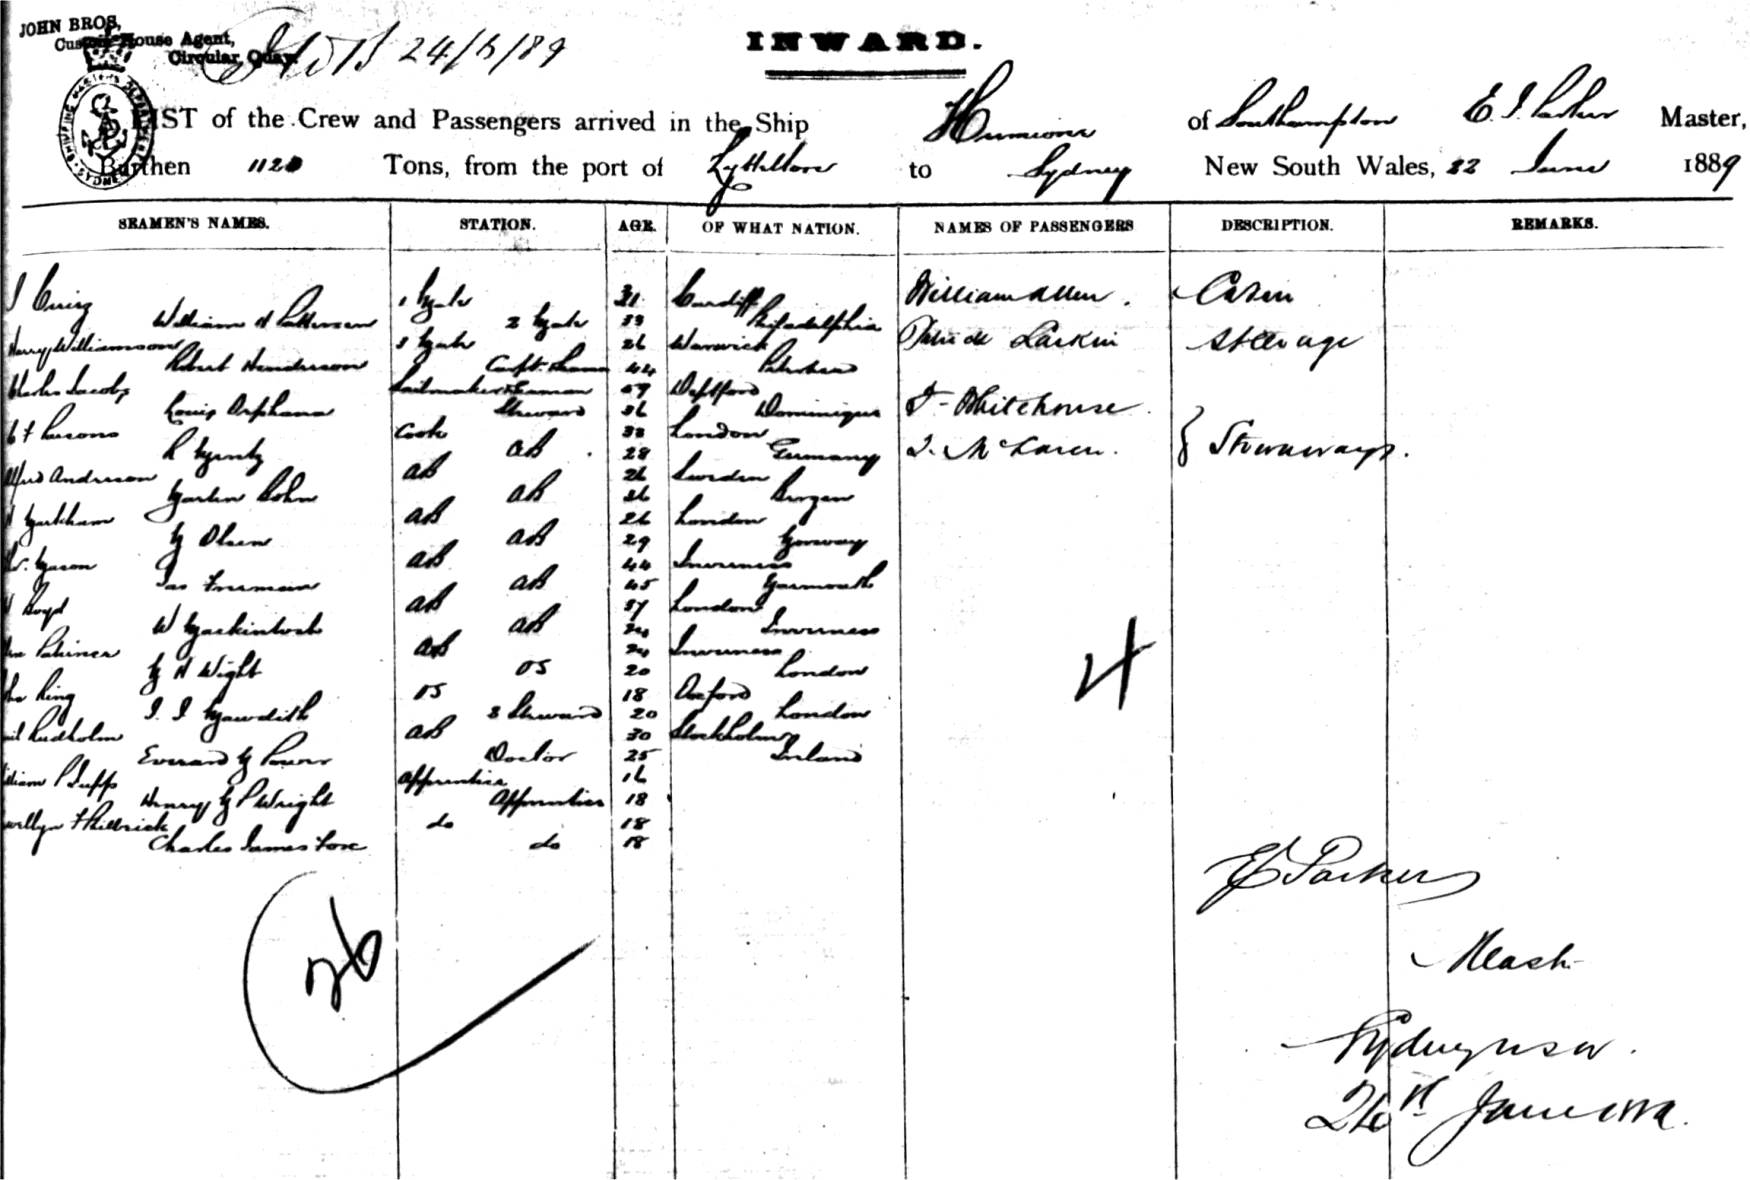 JOHN BROS,
Custom House Agent,
Circular Quay.
24/6/89
INWARD.
LIST of the Crew and Passengers arrived in the Ship Hermione of Southampton E. J. Parker Master,
Burthen 1120 Tons, from the port of Lyttelton to Sydney New South Wales, 22 June 1889
SEAMEN'S NAMES. STATION. AGE. OF WHAT NATION. NAMES OF PASSENGERS DESCRIPTION. REMARKS.
1 Mate 31 Cardiff William Allen. Cabin
William H Patterson 2 Mate 33 Philadelphia
Harry Williamson 3 Mate 26 Warwick Larkin Steerage
Robert Henderson 44
Charles Jacobs Sailmaker & Seaman 59 Deptford
Louis Orphana Steward 36 Dominique Whitehouse.
Parsons Cook 33 London
AB 28 Germany McLaren. } Stowaways.
Alfred Anderson AB 26 Sweden
Martin Bohn AB 26 Bergen
Markham AB 26 London
M Olsen AB 29 Norway
Mason AB 44 Inverness
Jas Freeman AB 45 Yarmouth
Boyd AB 37 London
W Mackintosh AB 24 Inverness
AB 24 Inverness
M H Wight OS 20 London
King OS 18 Oxford
J. J. Mawdith 2 Steward 20 London
Rudholm AB 30 Stockholm
Everard M Power Doctor 25 Ireland
William P Jupp Apprentice 16
Henry M P Wright Apprentice 18
Philbrick do 18
Charles James Fox do 18
4
26
E J Parker
Mast
Sydney NSW.
June